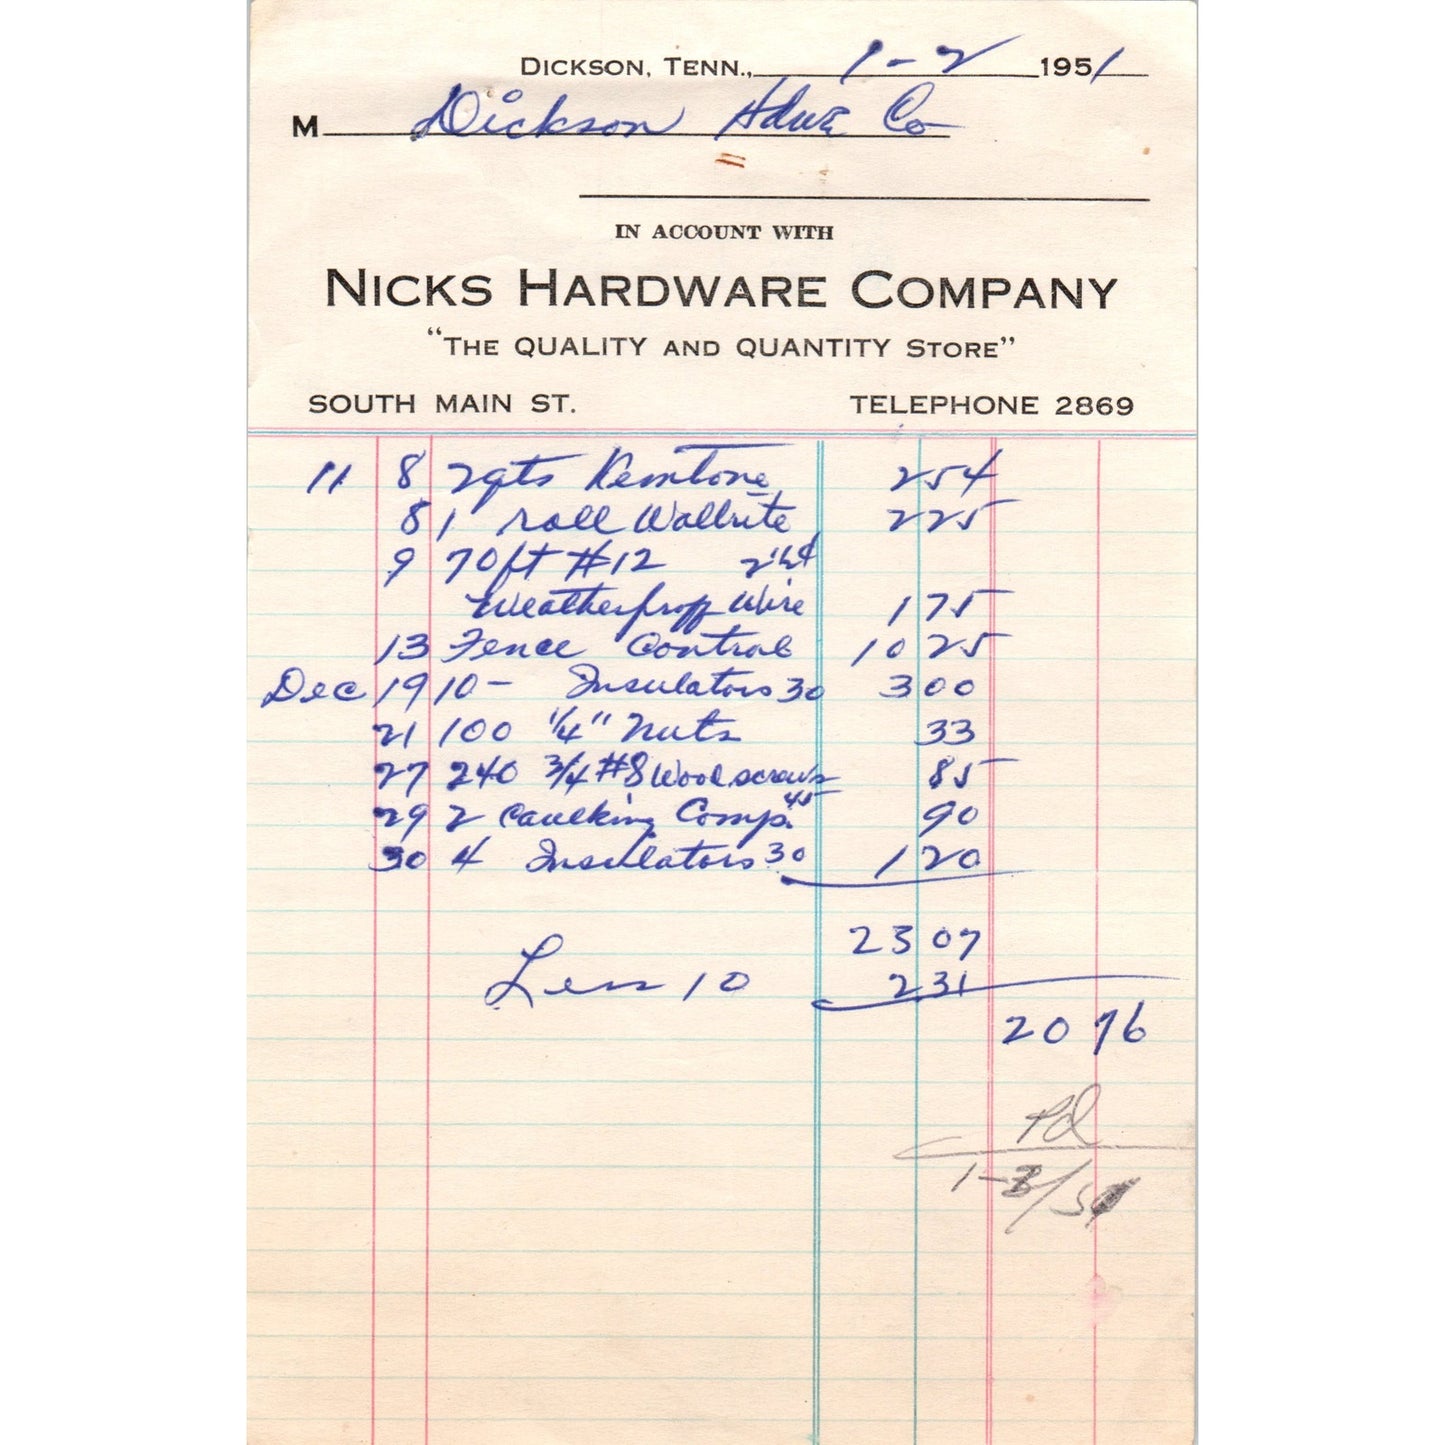 DICKSON, TENN., 1-2 1951
M Dickson Hdwe Co
IN ACCOUNT WITH
NICKS HARDWARE COMPANY
"THE QUALITY AND QUANTITY STORE"
SOUTH MAIN ST. TELEPHONE 2869
11 8 2 qts Kemtone 2 54
8 1 roll Wallrite 2 25
9 70 ft #12 2½¢
Weatherproff Wire 1 75
13 Fence Control 10 25
Dec 19 10 - Insulators 30 3 00
21 100 ¼" Nuts 33
27 240 3/4 #8 Wood screws 85
29 2 Caulking Comp. 45 90
30 4 Insulators 30 1 20
23 07
Less 10 2 31
20 76
Pd
1-3/51